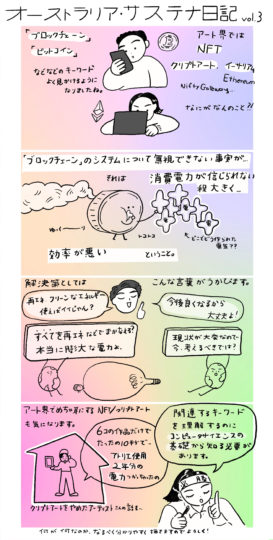 オーストラリア・サステナ日記 vol.3
「ブロックチェーン」
「ビットコイン」
などなどのキーワード
よく見かけるように
なりましたね。
アート界では
NFT
クリプトアート、イーサリアム
Ethereum
Nifty Gateway...
なにがなんのこと?!
「ブロックチェーン」のシステムについて無視できない事実が…
それは
消費電力が信じられない
程大きく…
ゆ〜〜
トコトコ
効率が悪い
ということ。
どこでどう作られた
電気??
解決策としては
こんな言葉がうかびます。
再エネ クリーンなエネルギー
使えばイイじゃん?
今後良くなるから
大丈夫よ!
すべてを再エネなどでまかなえる?
本当に膨大な電力よ。
現状が大変なので
今、考えるべきでは?
アート界でめちゃ耳にするNFT/クリプトアート
も気になります。
6コの作品だけで
たったの10秒で…
アトリエ使用
2年分の
電力つかっちゃったの
クリプトアートをやめたアーティストさんの話を…
関連するキーワード
を理解するのに
コンピュータサイエンスの
基礎から知る必要が
あります。
何が何なのか、なるべく分かりやすく描きますのでよろしく!